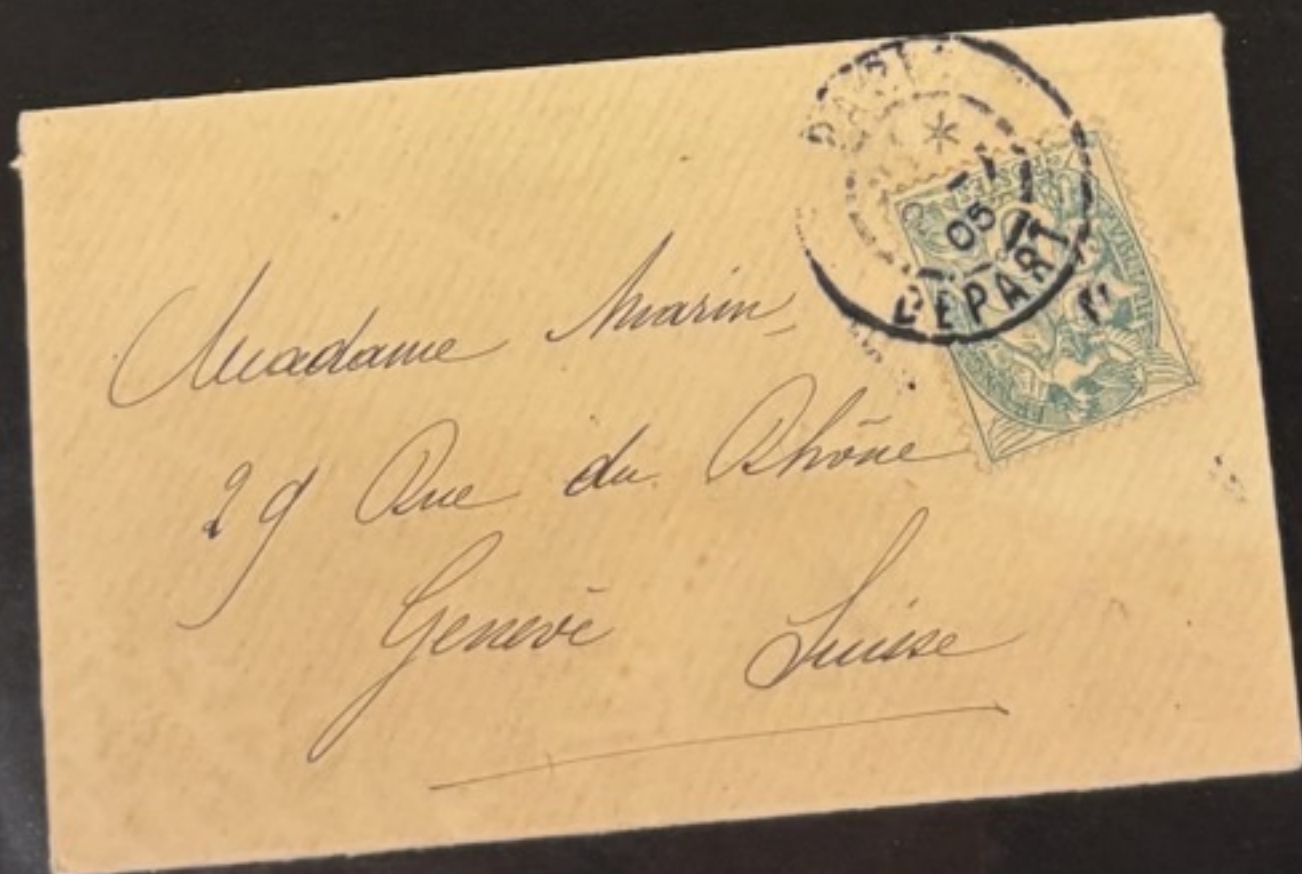 05
DEPART
Madame Marin,
29 Rue du Rhône
Genève Suisse